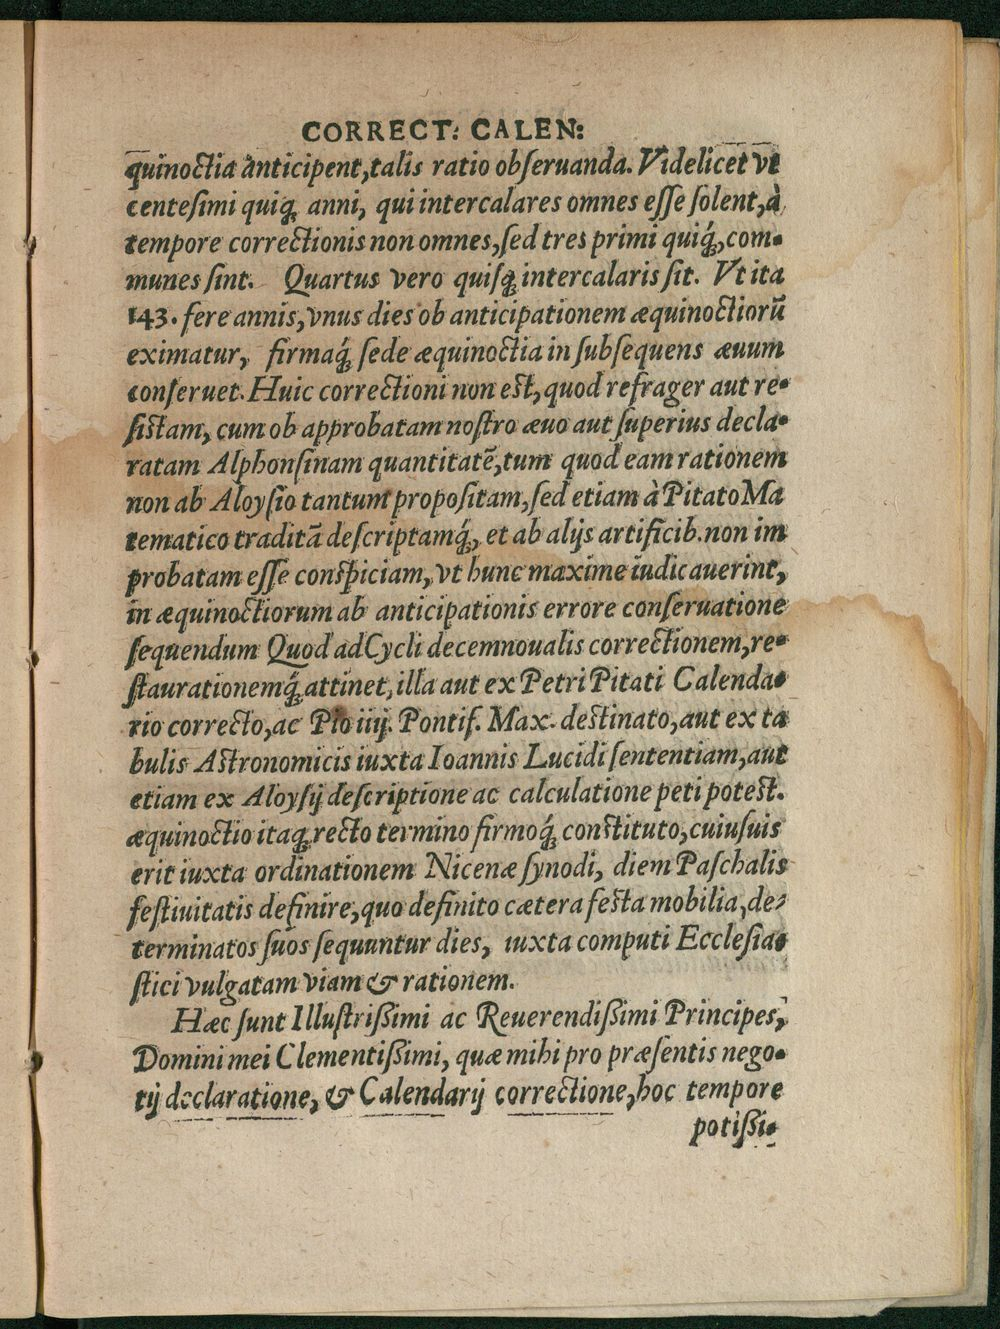 CORRECT: CALEN:
quinoctia anticipent, talis ratio obſeruanda. Videlicet vt
centeſimi quiq́; anni, qui intercalares omnes eſſe ſolent, à
tempore correctionis non omnes, ſed tres primi quiq́;, com-
munes ſint. Quartus vero quiſq́; intercalaris ſit. Vt ita
143. fere annis, vnus dies ob anticipationem æquinoctiorū
eximatur, firmaq́; ſede æquinoctia in ſubſequens æuum
conſeruet. Huic correctioni non est, quod refrager aut re-
ſistam, cum ob approbatam noſtro æuo aut ſuperius decla-
ratam Alphonſinam quantitatē, tum quod eam rationem
non ab Aloyſio tantum propoſitam, ſed etiam à Pitato Ma
tematico traditā deſcriptamq́;, et ab alijs artificib. non im
probatam eſſe conſpiciam, vt hunc maxime iudicauerint,
in æquinoctiorum ab anticipationis errore conſeruatione
ſequendum Quod ad Cycli decemnoualis correctionem, re-
ſtaurationemq́; attinet, illa aut ex Petri Pitati Calenda-
rio correcto, ac Pio iiij. Pontif. Max. destinato, aut ex ta
bulis Astronomicis iuxta Ioannis Lucidi ſententiam, aut
etiam ex Aloyſij deſcriptione ac calculatione peti potest.
æquinoctio itaq́; recto termino firmoq́; constituto, cuiuſuis
erit iuxta ordinationem Nicenæ ſynodi, diem Paſchalis
feſtiuitatis definire, quo definito cætera feſta mobilia, de-
terminatos ſuos ſequuntur dies, iuxta computi Eccleſia-
ſtici vulgatam viam & rationem.
Hæc ſunt Illuſtriſſimi ac Reuerendiſſimi Principes,
Domini mei Clementiſſimi, quæ mihi pro præſentis nego-
tij declaratione, & Calendarij correctione, hoc tempore
potiſſi-